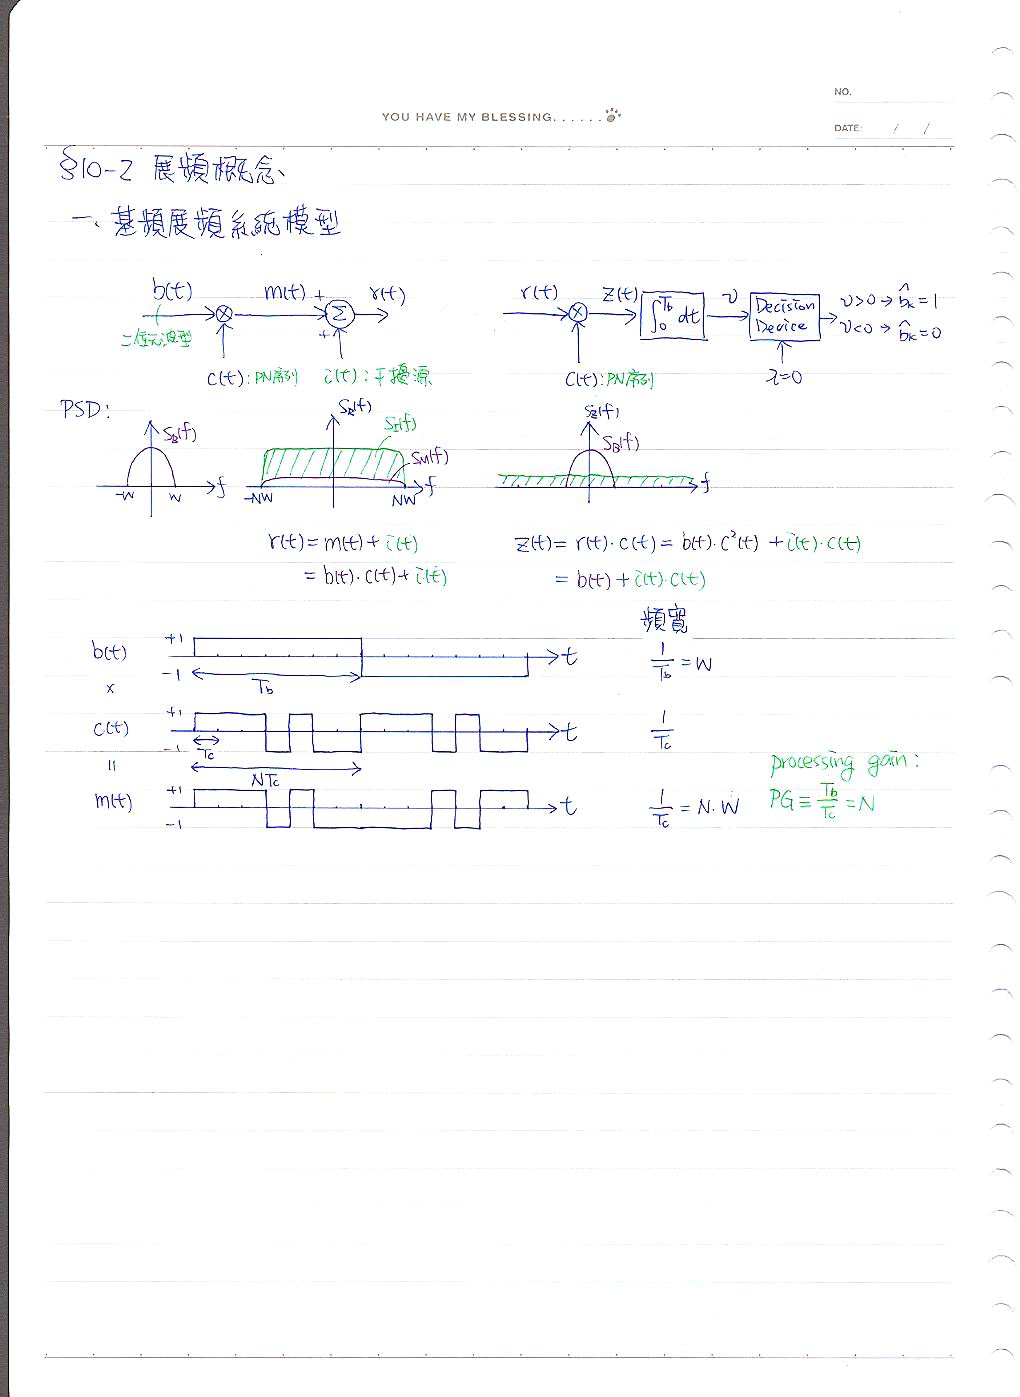 NO.
YOU HAVE MY BLESSING......
DATE: / /
§10-2 展頻概念、
一、基頻展頻系統模型
b(t) m(t) + r(t)
二位元波型
× Σ
+
c(t):PN序列 i(t):干擾源
r(t) × z(t) ∫₀^Tb dt v Decision Device
v>0→b̂k=1
v<0→b̂k=0
c(t):PN序列 λ=0
PSD:
SB(f) -W W f
SR(f) SI(f) SM(f) -NW NW f
SZ(f) SB(f) f
r(t)=m(t)+i(t)
=b(t)·c(t)+i(t)
z(t)=r(t)·c(t)=b(t)·c²(t)+i(t)·c(t)
=b(t)+i(t)·c(t)
頻寬
b(t) +1 -1 Tb t 1/Tb=W
×
c(t) +1 -1 Tc NTc t 1/Tc
=
m(t) +1 -1 t 1/Tc=N·W
processing gain:
PG≡Tb/Tc=N